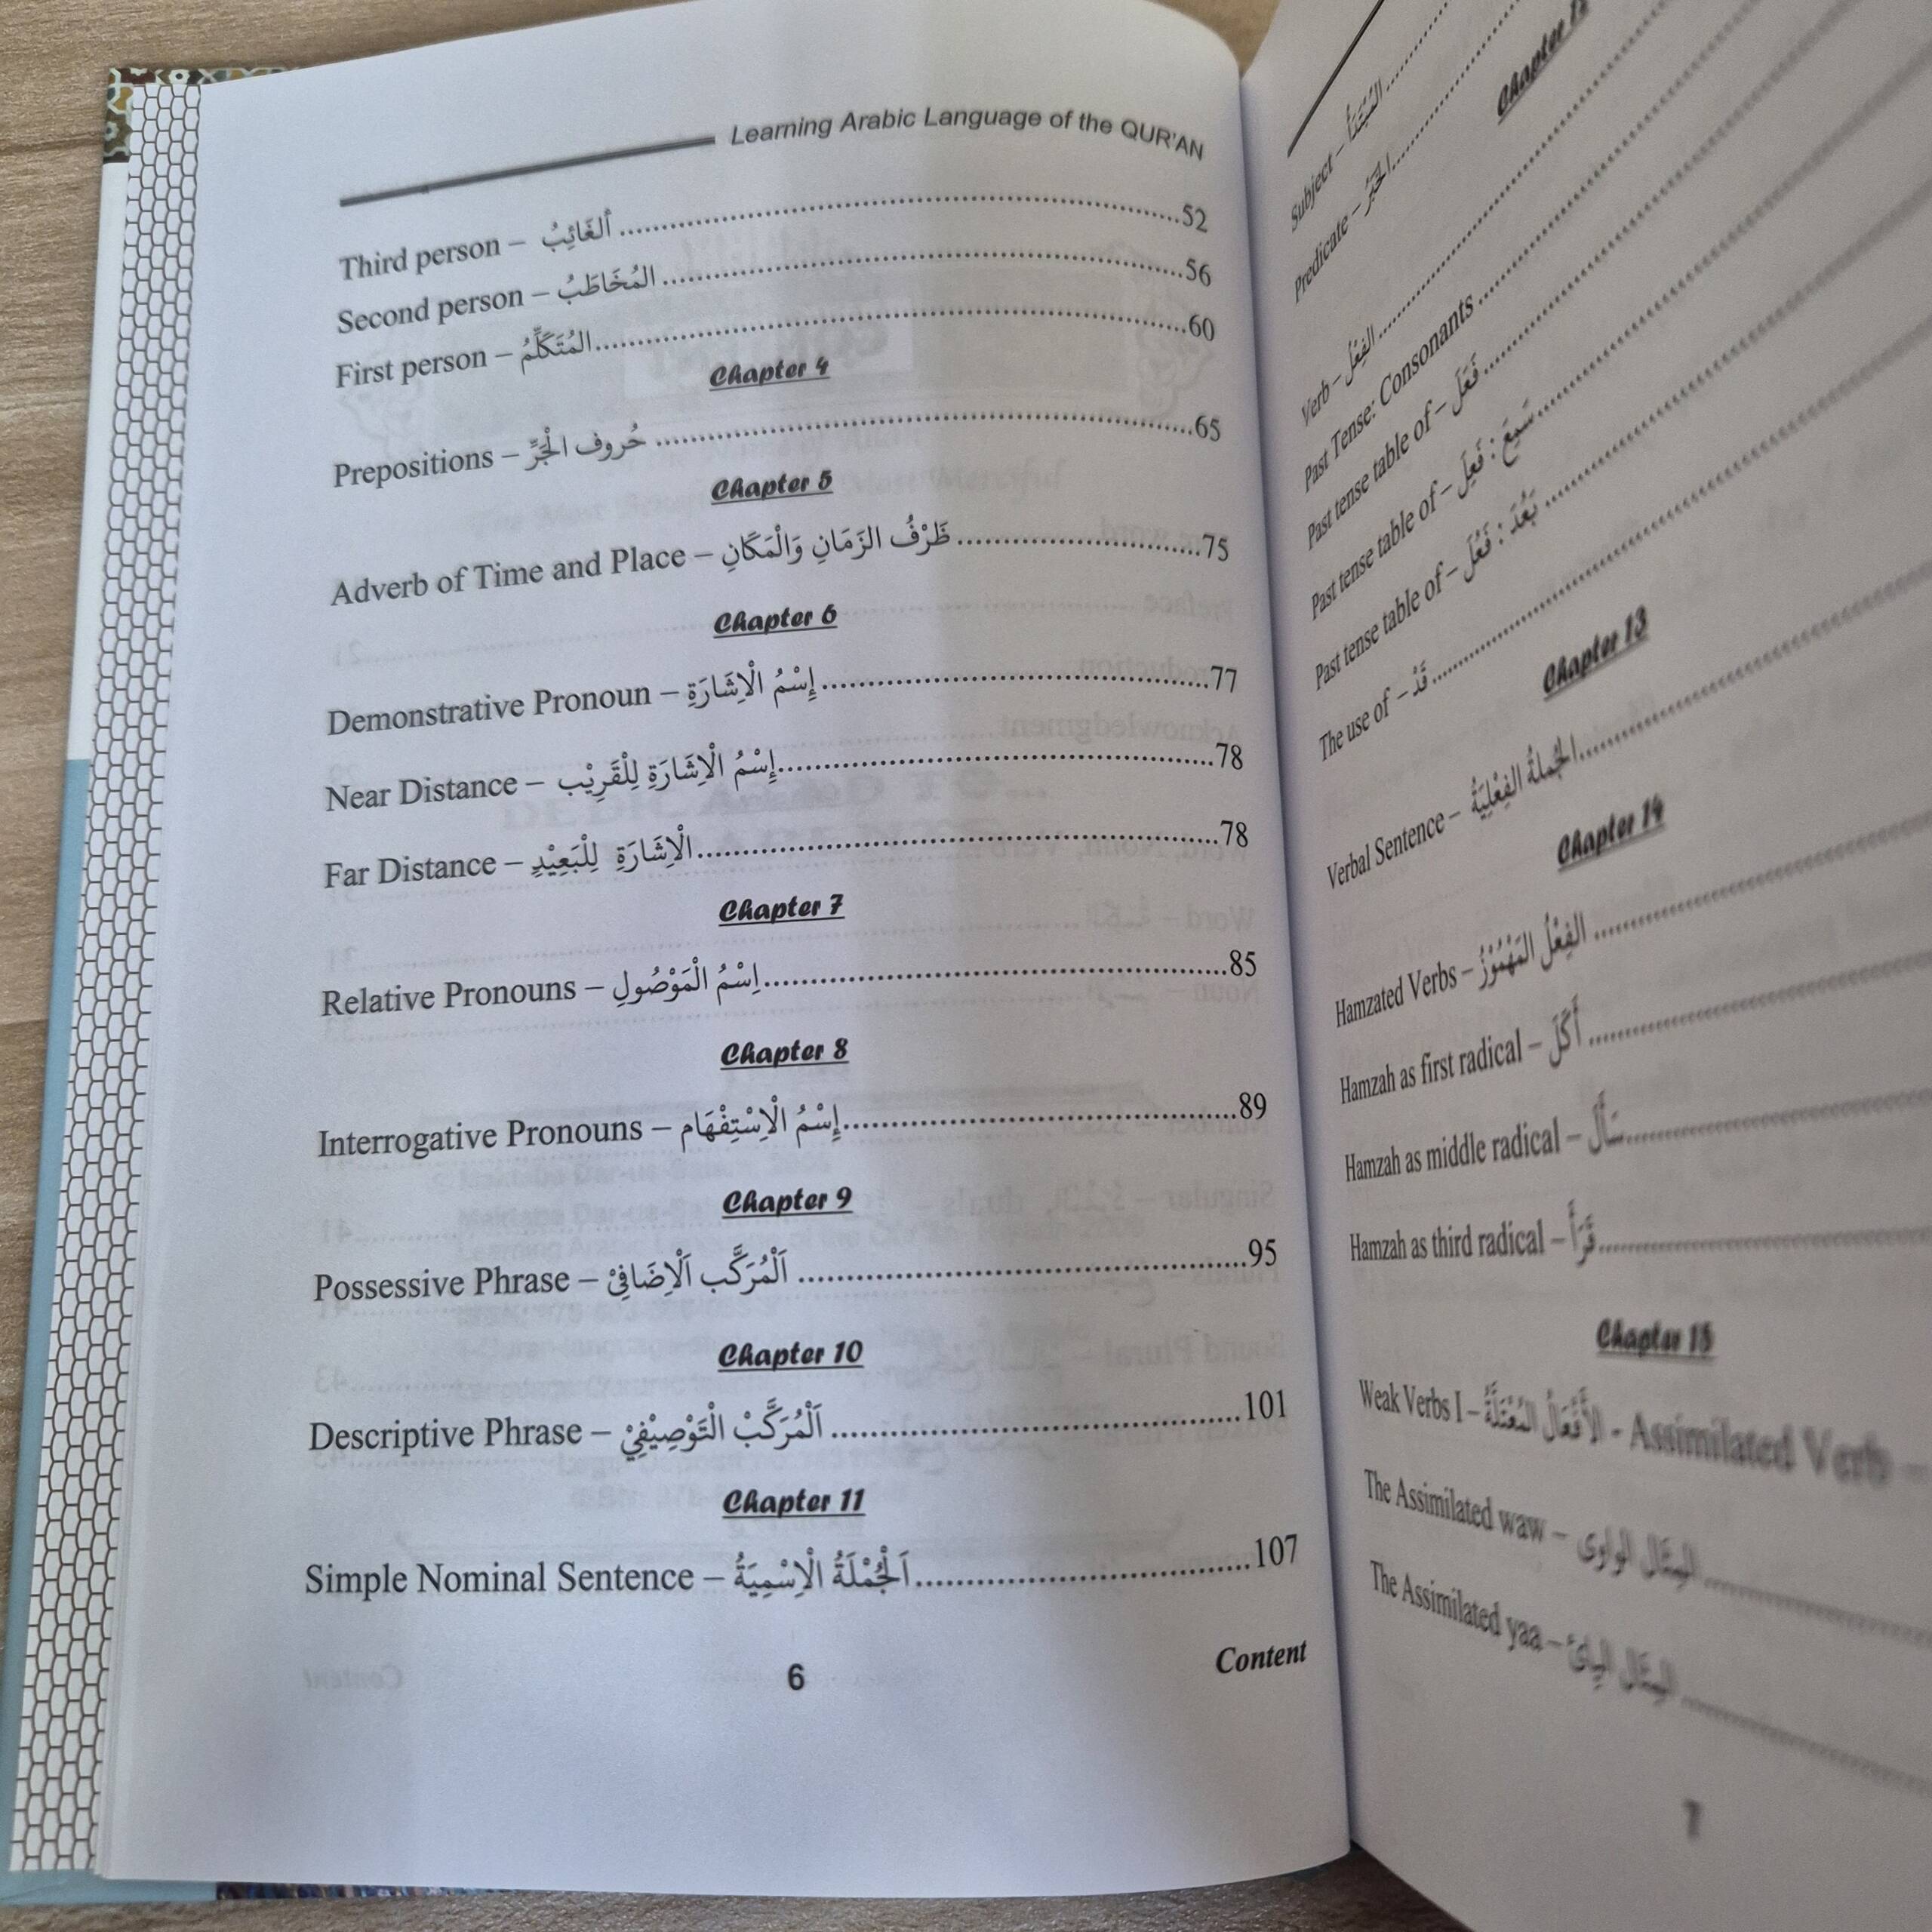 Learning Arabic Language of the QUR'AN
Third person – ألغَائِبُ ........ 52
Second person – المُخَاطَبُ ........ 56
First person – المُتَكَلِّمُ ........ 60
Chapter 4
Prepositions – حُروف الْجَرِّ ........ 65
Chapter 5
Adverb of Time and Place – ظَرْفُ الزَّمَانِ وَالْمَكَانِ ........ 75
Chapter 6
Demonstrative Pronoun – إِسْمُ الْاِشَارَةِ ........ 77
Near Distance – إِسْمُ الْاِشَارَةِ لِلْقَرِيْب ........ 78
Far Distance – الْاِشَارَةِ لِلْبَعِيْدِ ........ 78
Chapter 7
Relative Pronouns – اِسْمُ الْمَوْصُولِ ........ 85
Chapter 8
Interrogative Pronouns – إِسْمُ الْاِسْتِفْهَام ........ 89
Chapter 9
Possessive Phrase – اَلْمُرَكَّب اَلْاِضَافِيْ ........ 95
Chapter 10
Descriptive Phrase – اَلْمُرَكَّبْ الْتَوْصِيْفِيْ ........ 101
Chapter 11
Simple Nominal Sentence – اَلْجُمْلَةُ الْاِسْمِيَةُ ........ 107
Content
6
Subject – المُبْتَدَأُ ........
Predicate – الخَبَرُ ........
Chapter 12
Verb – الفِعْلُ ........
Past Tense: Consonants ........
Past tense table of – فَعَلَ ........
Past tense table of – فَعِلَ : سَمِعَ ........
Past tense table of – فَعُلَ : بَعُدَ ........
The use of – قَدْ ........
Chapter 13
Verbal Sentence – الجُملةُ الفِعْلِيَةُ ........
Chapter 14
Hamzated Verbs – الفِعْلُ المَهْمُوْزُ ........
Hamzah as first radical – أَكَلَ ........
Hamzah as middle radical – سَأَلَ ........
Hamzah as third radical – قَرَأَ ........
Chapter 15
Weak Verbs I – الأَفْعَالُ المُعْتَلَّةُ - Assimilated Verb –
The Assimilated waw – المِثَال الواوى ........
The Assimilated yaa – ........
7